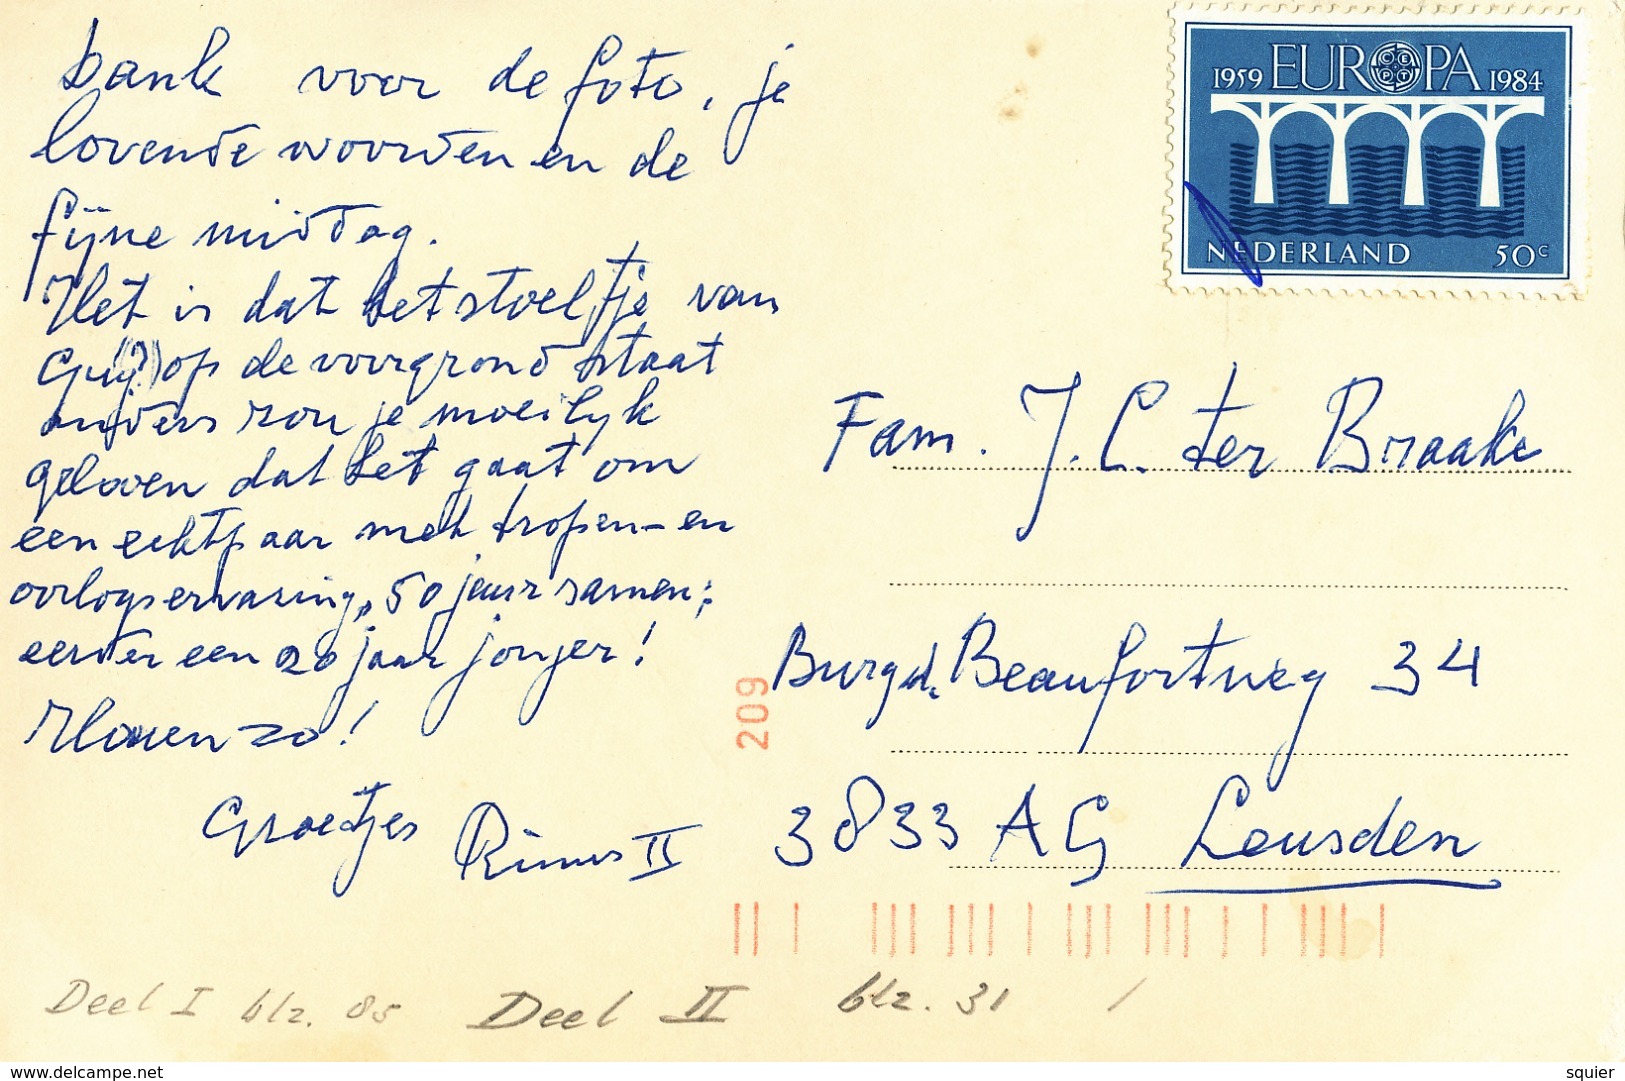 dank voor de foto, je
lovende woorden en de
fijne middag.
Het is dat het stoeltje van
Guy(?) op de voorgrond staat
anders zou je moeilijk
geloven dat het gaat om
een echtpaar met tropen- en
oorlogservaring, 50 jaar samen;
eerder een 20 jaar jonger!
Houen zo!
Groetjes
Rinus II
1959 EUROPA 1984
CEPT
NEDERLAND 50c
Fam. J. C. ter Braake
Burgd. Beaufortweg 34
3833 AG Leusden
209
Deel I blz. 85 Deel II blz. 31
www.delcampe.net
squier